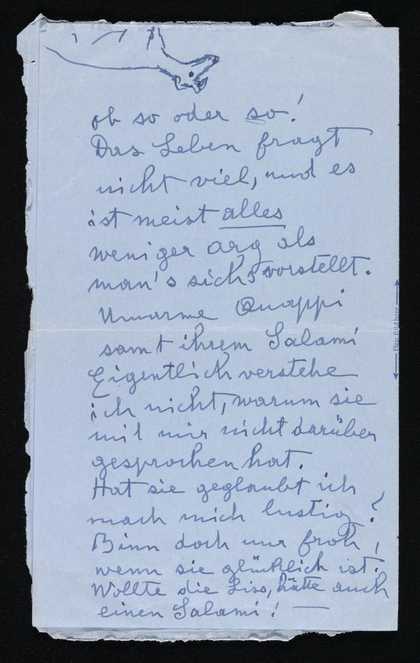 ob so oder so!
Das Leben fragt
nicht viel, und es
ist meist alles
weniger arg als
man's sich vorstellt.
Umarme Quappi
samt ihrem Salami
Eigentlich verstehe
ich nicht, warum sie
mit mir nicht darüber
gesprochen hat.
Hat sie geglaubt ich
mach mich lustig?
Binn doch nur froh,
wenn sie glücklich ist.
Wollte die Liss, hätte auch
einen Salami! —